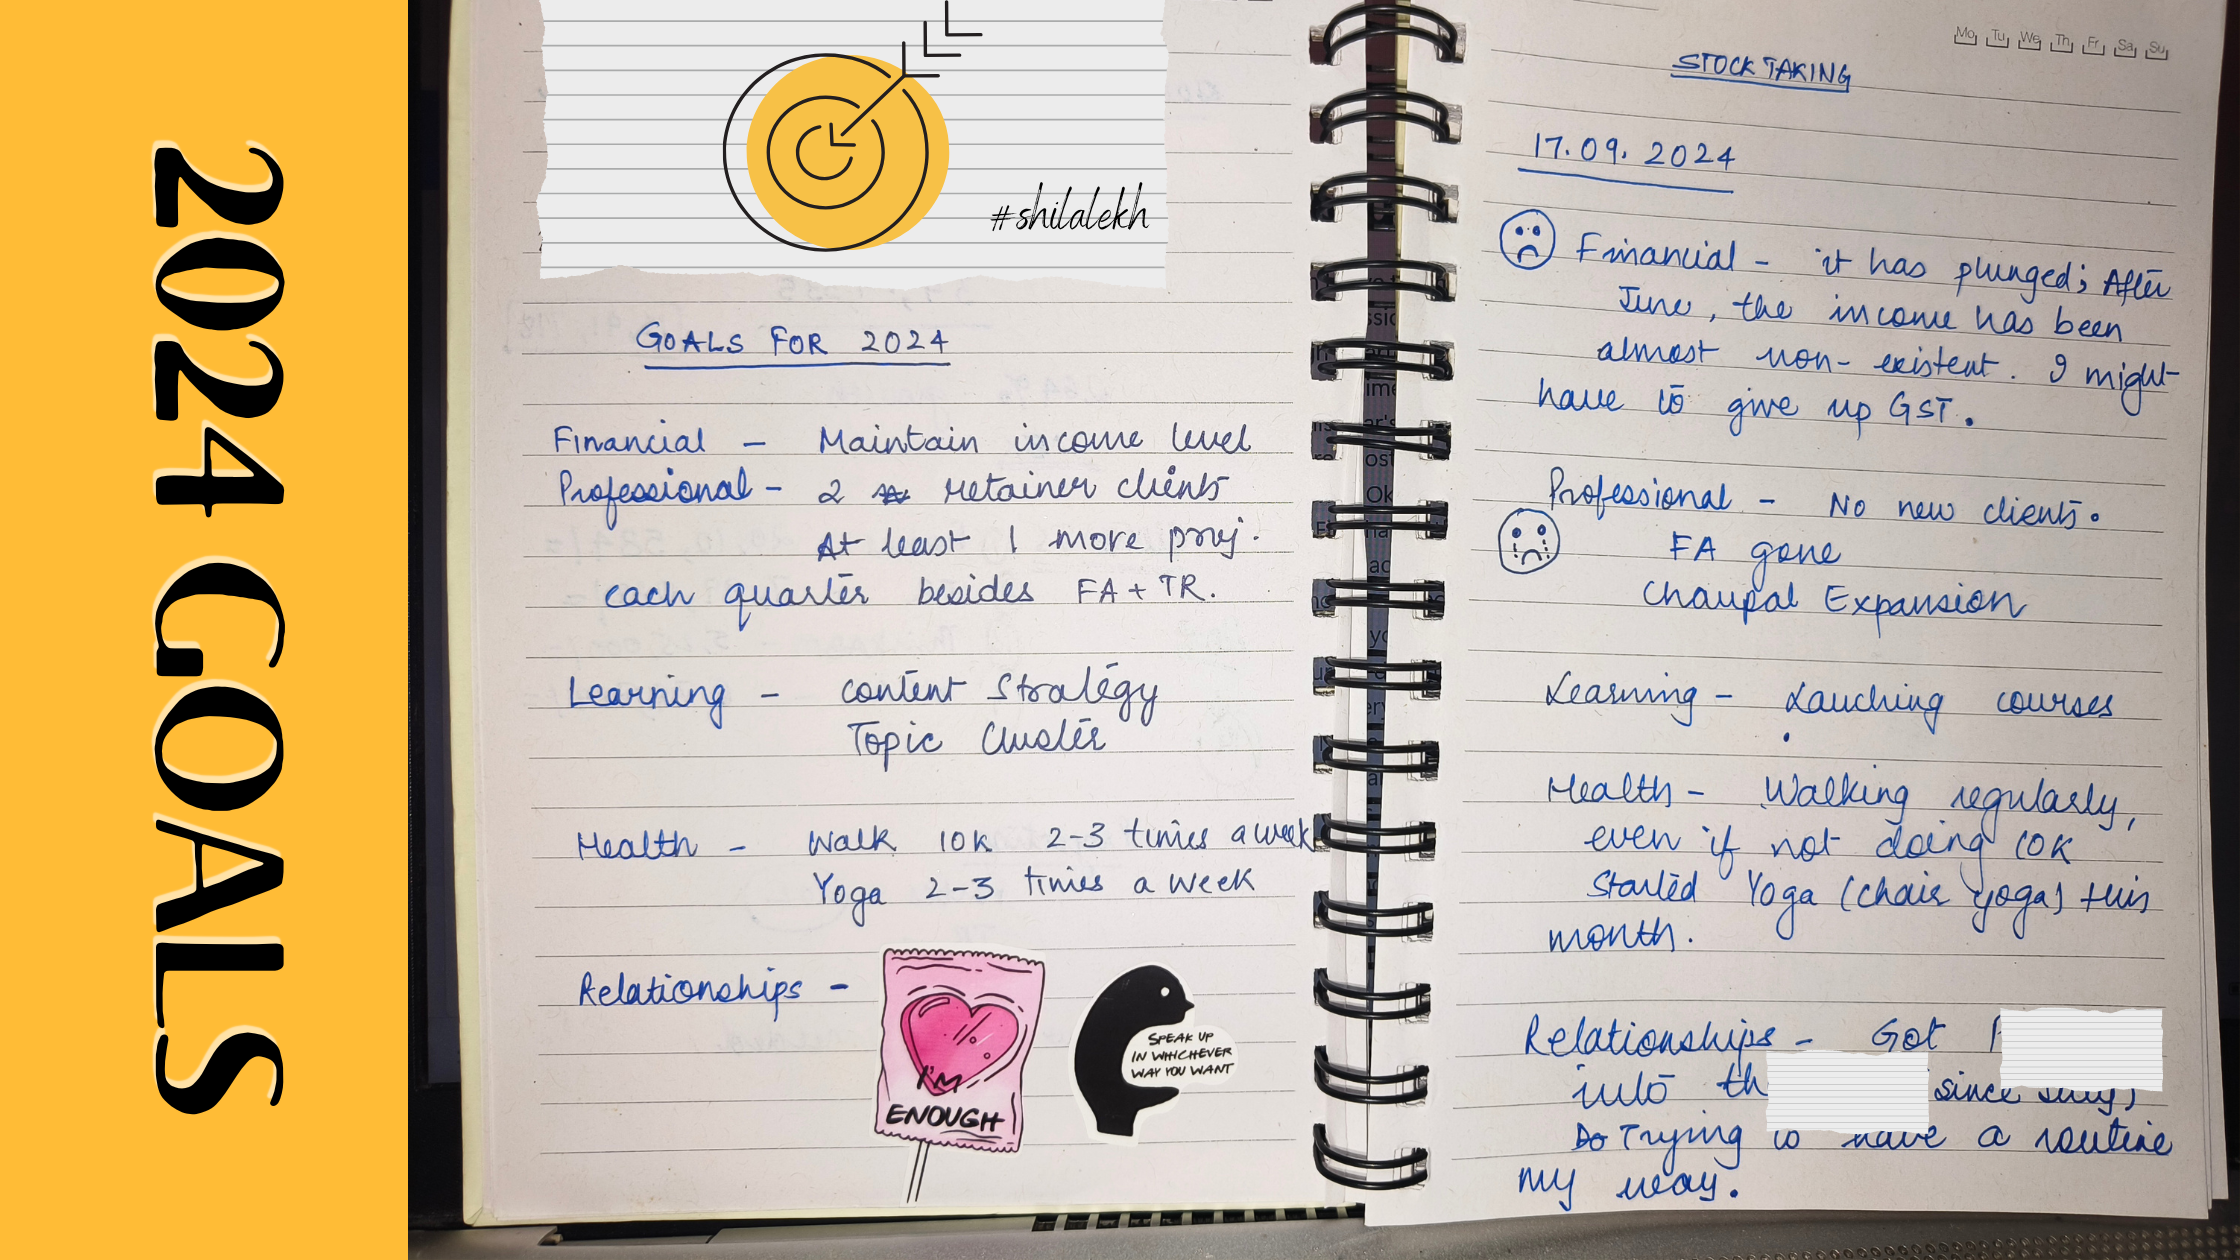 2024 GOALS
#shilalekh
GOALS FOR 2024
Financial - Maintain income level
Professional - 2 retainer clients
At least 1 more proj.
each quarter besides FA + TR.
Learning - content Strategy
Topic Cluster
Health - Walk 10K 2-3 times a week
Yoga 2-3 times a week
Relationships -
I'M
ENOUGH
SPEAK UP
IN WHICHEVER
WAY YOU WANT
Mo Tu We Th Fr Sa Su
STOCK TAKING
17.09.2024
Financial - it has plunged; After
June, the income has been
almost non-existent. I might
have to give up GST.
Professional - No new clients.
FA gone
Chaupal Expansion
Learning - Lauching courses
Health - Walking regularly,
even if not doing 10K
Started Yoga (chair yoga) this
month.
Relationships - Got
into since
Do Trying to have a routine
my way.